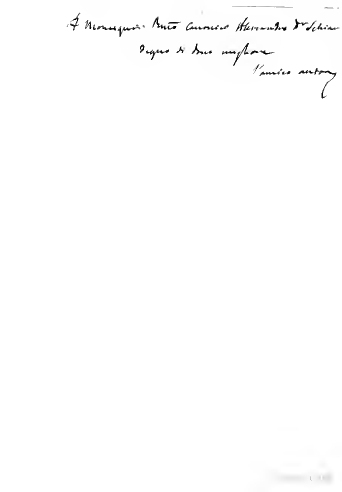 A Monsignor Canonico Alessandro Dr Schia
Degno di dono migliore
l'amico autore